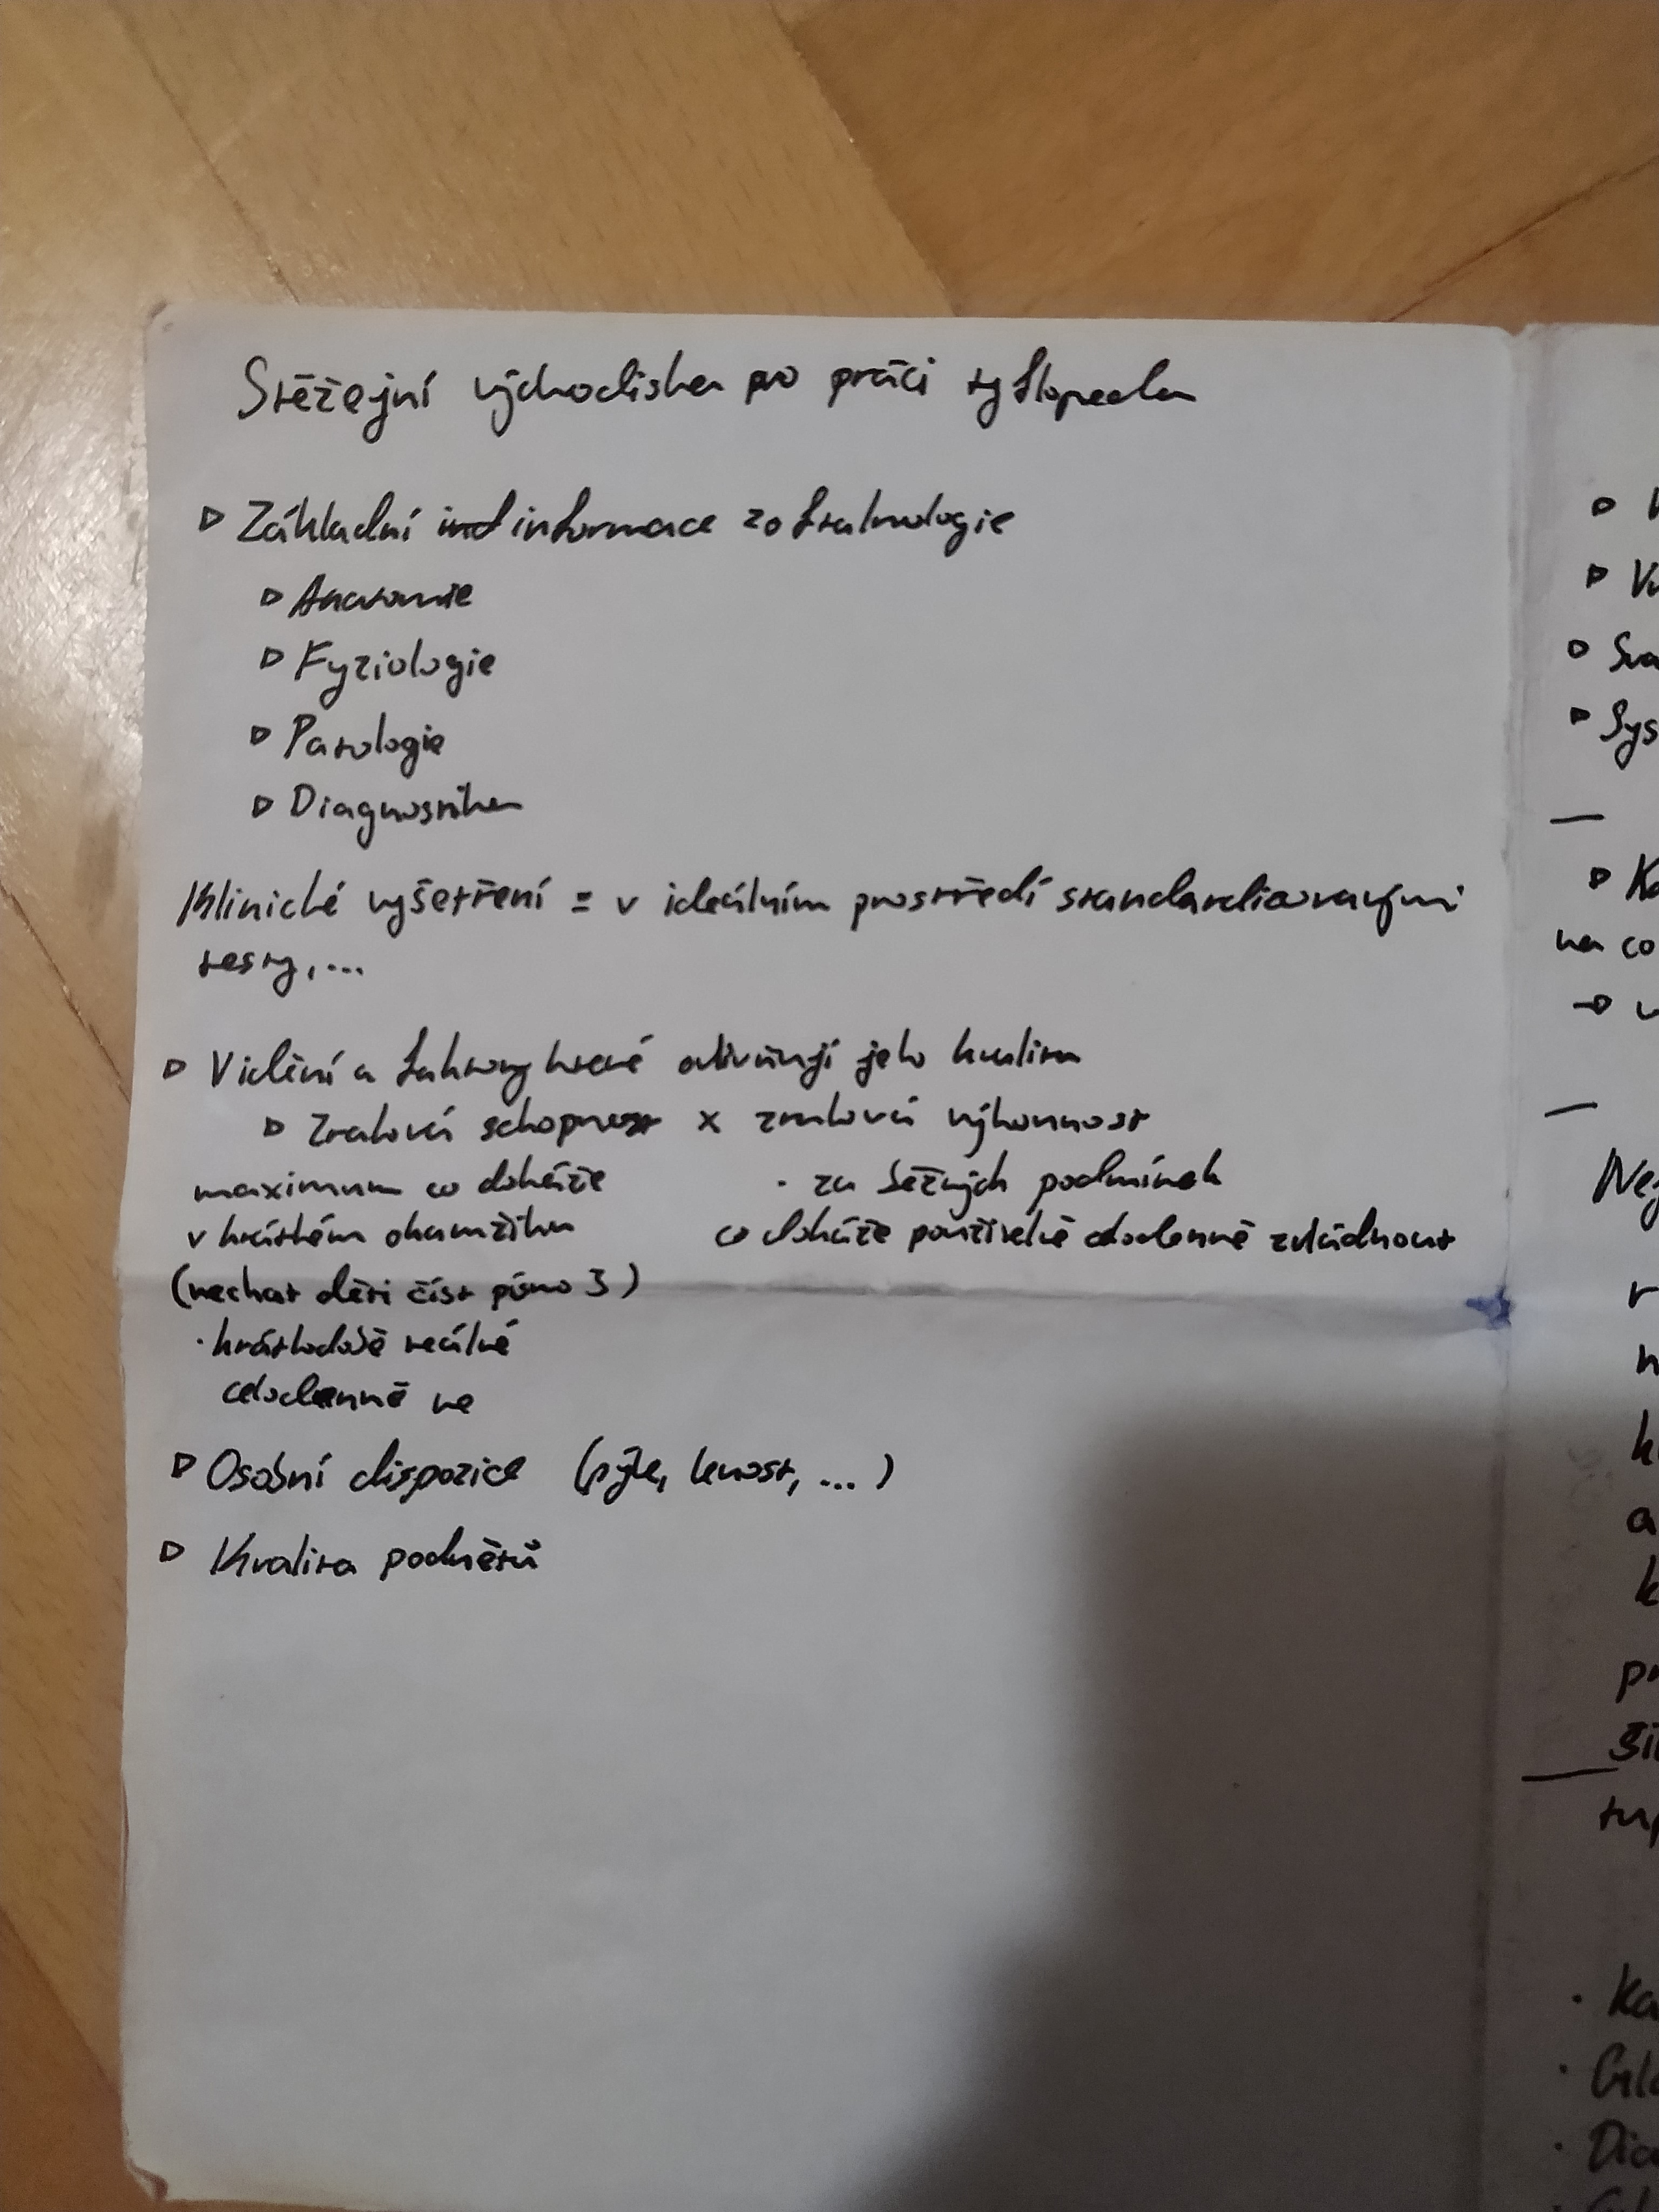 Stěžejní východiska pro práci tyflopeda
▹ Základní ind informace z oftalmologie
▹ Anatomie
▹ Fyziologie
▹ Patologie
▹ Diagnostika
Klinické vyšetření = v ideálním prostředí standardizovanými
testy,...
▹ Vidění a faktory které ovlivňují jeho kvalitu
▹ Zraková schopnost x zraková výkonnost
maximum co dokáže
v krátkém okamžiku
(nechat děti číst písmo 3)
· krátkodobě reálné
celodenně ne
· za běžných podmínek
co dokáže použitelně celodenně zvládnout
▹ Osobní dispozice (píle, lenost, ...)
▹ Kvalita podnětů
na co